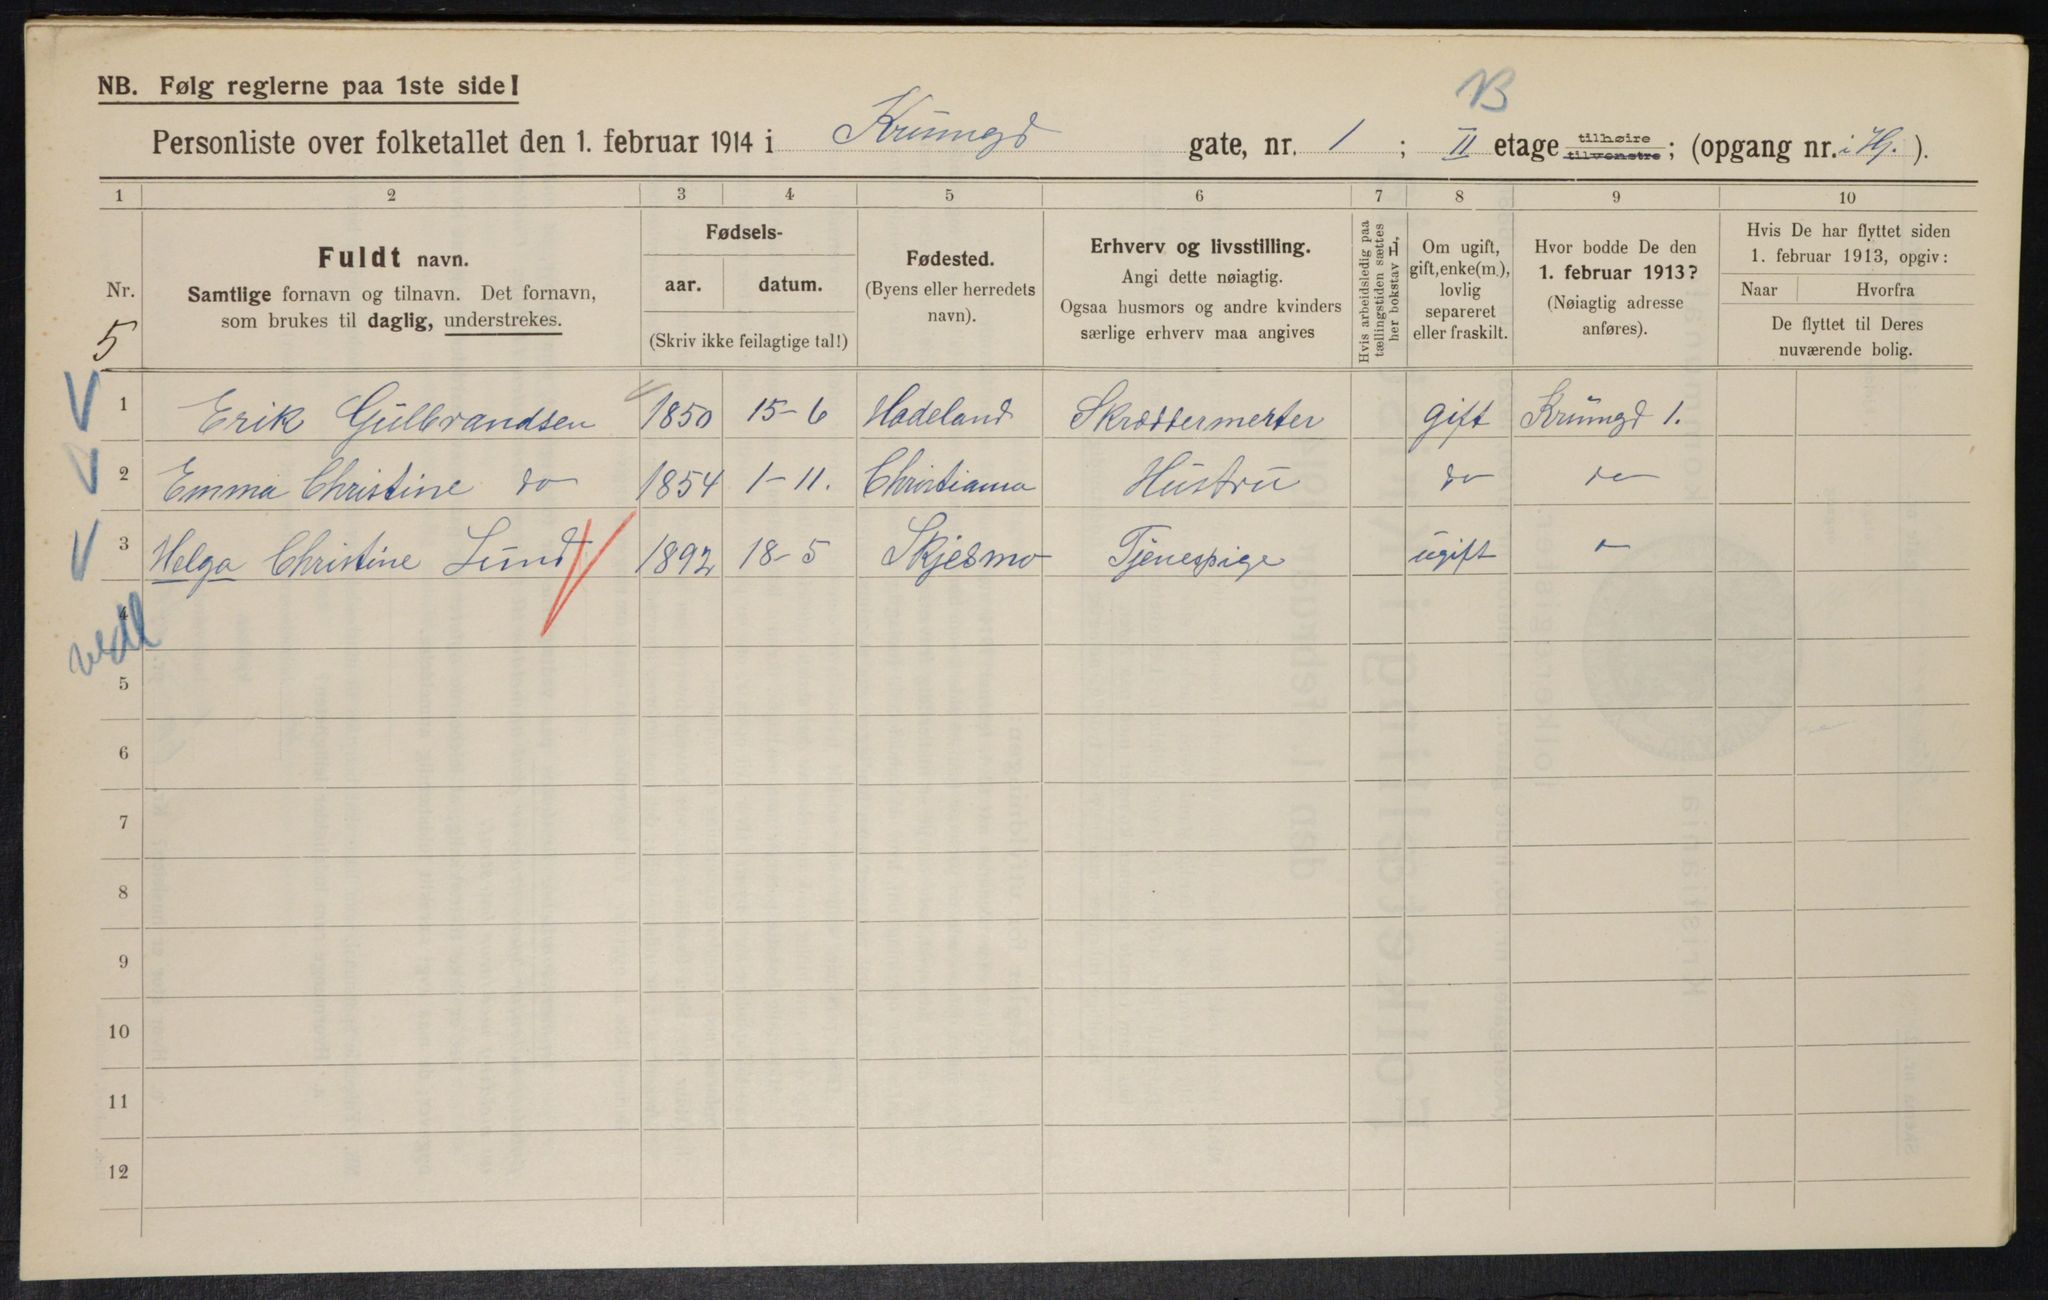 NB. Følg reglerne paa 1ste side!
B
Personliste over folketallet den 1. februar 1914 i Krumgd gate, nr. 1 ; II etage tilhøire tilvenstre ; (opgang nr. i Hj. ).
1 2 3 4 5 6 7 8 9 10
Nr.
5
Fuldt navn.
Samtlige fornavn og tilnavn. Det fornavn,
som brukes til daglig, understrekes.
Fødsels-
aar. datum.
(Skriv ikke feilagtige tal!)
Fødested.
(Byens eller herredets
navn).
Erhverv og livsstilling.
Angi dette nøiagtig.
Ogsaa husmors og andre kvinders
særlige erhverv maa angives
Hvis arbeidsledig paa
tællingstiden sættes
her bokstav L.
Om ugift,
gift, enke(m.),
lovlig
separeret
eller fraskilt.
Hvor bodde De den
1. februar 1913?
(Nøiagtig adresse
anføres).
Hvis De har flyttet siden
1. februar 1913, opgiv:
Naar Hvorfra
De flyttet til Deres
nuværende bolig.
1 Erik Gulbrandsen 1850 15-6 Hadeland Skræddermester gift Krumgd 1.
2 Emma Christine do 1854 1-11. Christiania Hustru do do
3 Helga Christine Lund 1892 18-5 Skjesmo Tjenespige ugift "
4
5
6
7
8
9
10
11
12